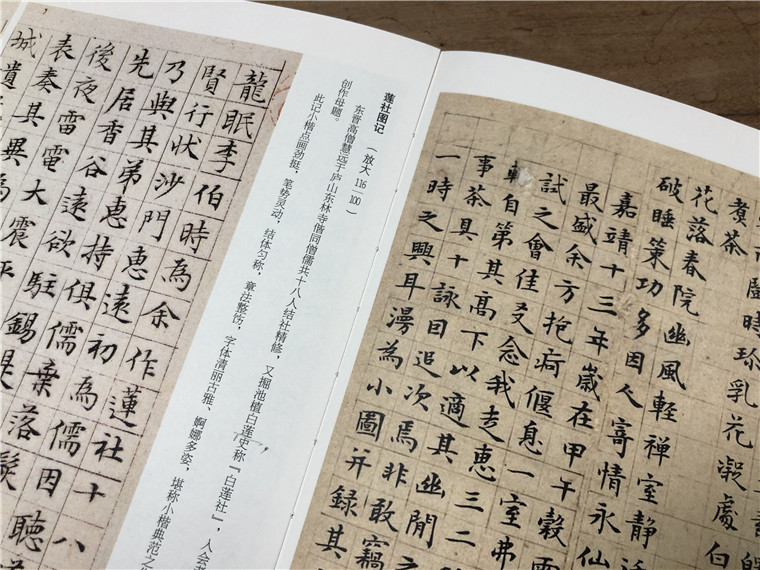 時珍乳花凝處白
煮茶
花落春院幽風輕禪室靜
破睡策功多因人寄情永仙
嘉靖十三年歲在甲午穀雨
最盛余方抱疴偃息一室弗
試之會佳友念我走惠三二
自第其高下以適其幽閒之
事茶具十詠因追次焉非敢竊
一時之興耳漫為小圖并錄其
莲社图记（放大116/100）
东晋高僧慧远于庐山东林寺偕同僧儒共十八人结社精修，又掘池植白莲，史称『白莲社』，入会者
创作母题。
此记小楷点画劲挺，笔势灵动，结体匀称，章法整饬，字体清丽古雅、婀娜多姿，堪称小楷典范之
龍眠李伯時為余作蓮社十八
賢行狀沙門惠遠初為儒因聽
乃與其弟惠持俱儒棄落髮
先居香谷遠欲駐錫是
後夜雷電大震平
表奏其異為
城遺